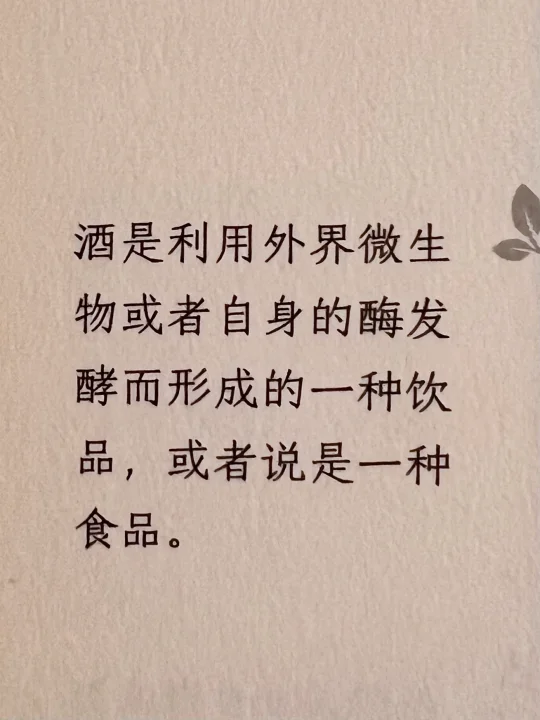 酒是利用外界微生
物或者自身的酶发
酵而形成的一种饮
品，或者说是一种
食品。